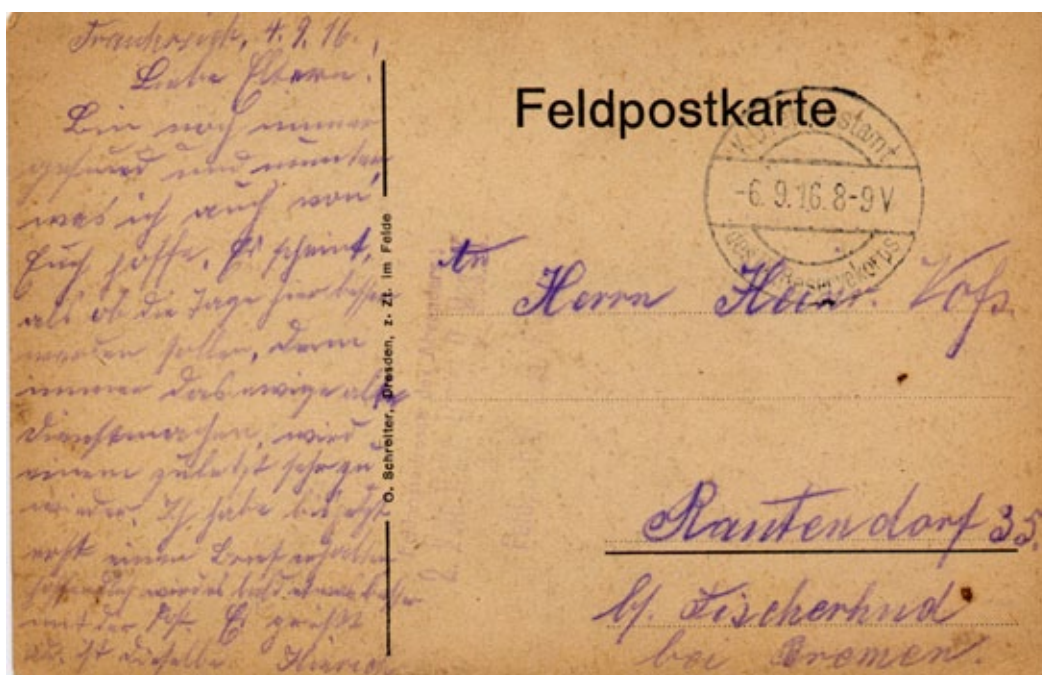 Frankreich, 4.9.16.,
Liebe Eltern.
Bin noch immer
gesund und munter,
was ich auch von
Euch hoffe. Es scheint,
als ob die Tage hier besser
werden sollen, denn
immer das ewige alte
Dienstmachen, wird
einem zuletzt sehr zu
wieder. Ich habe bis jetzt
erst einen Brief erhalten
hoffendlich wird es bald etwas besser
mit der Post. Es grüßt
Hinrich
O. Schreiter, Dresden, z. Zt. im Felde
Feldpostkarte
-6.9.16.8-9V
Reservekorps
An
Herrn Heinr. Voß.
Rautendorf 35.
b/. Fischerhud
bei Bremen.